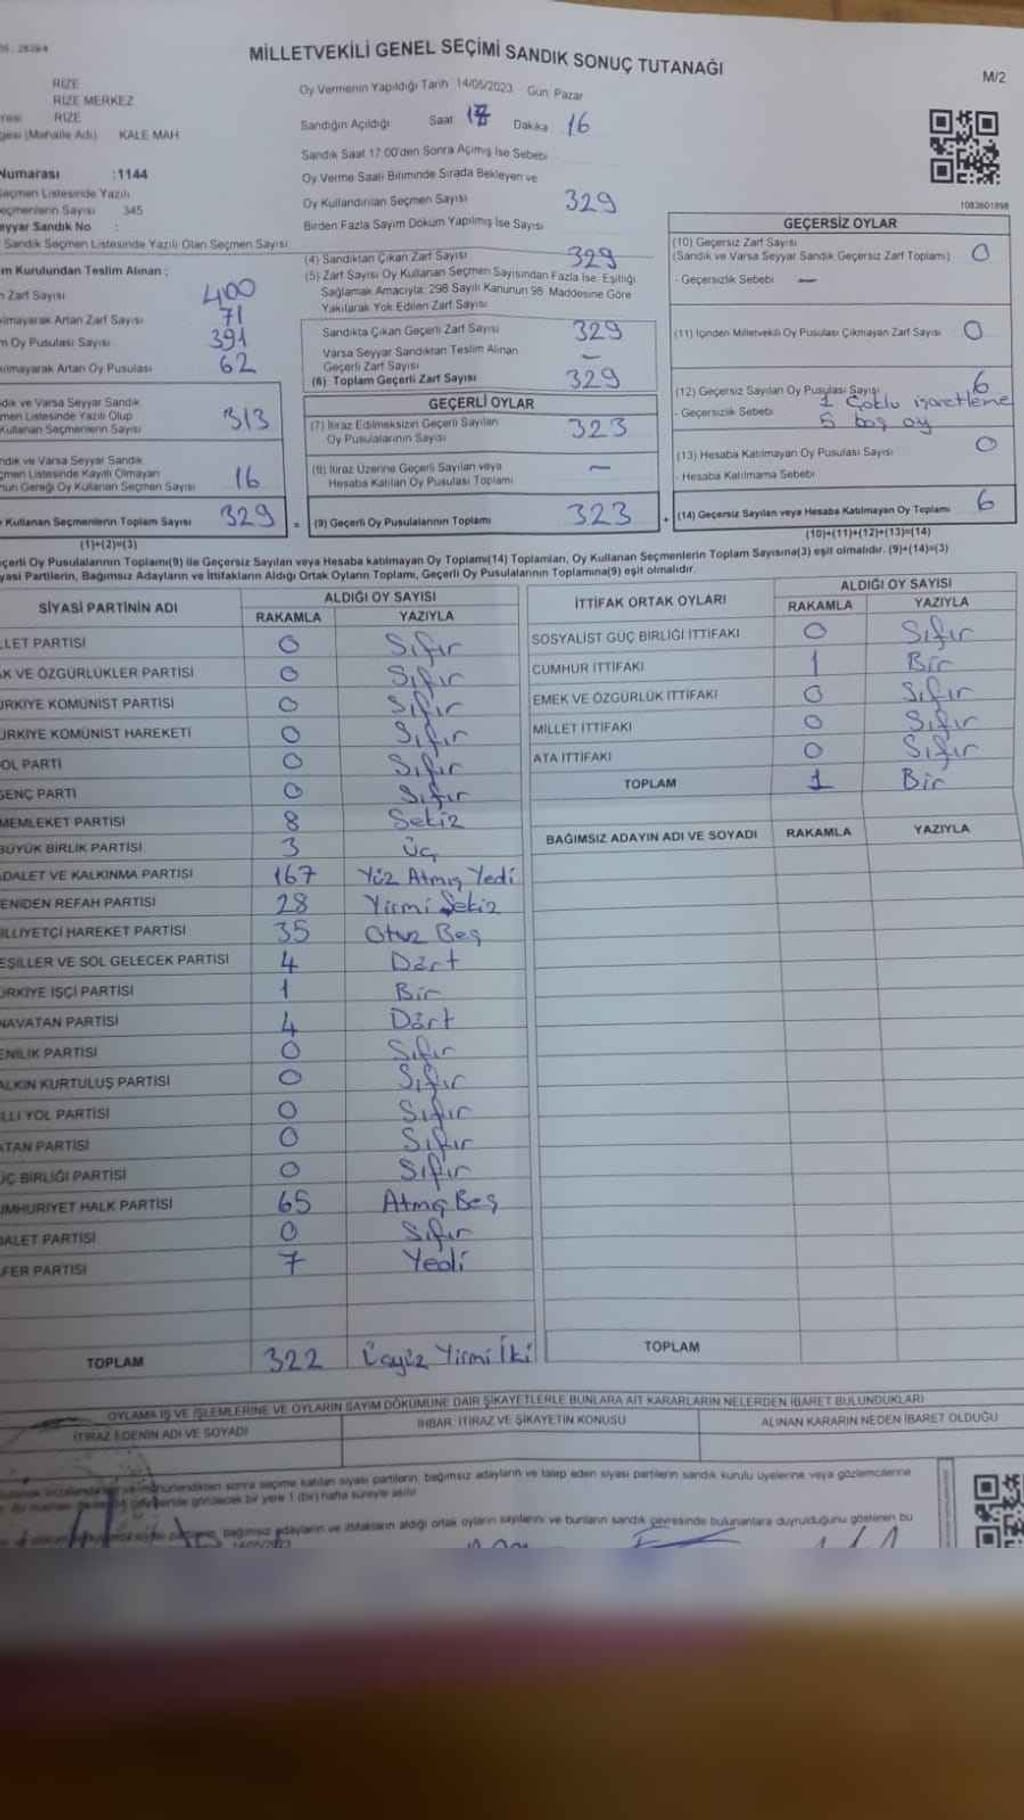 MİLLETVEKİLİ GENEL SEÇİMİ SANDIK SONUÇ TUTANAĞI
M/2
RİZE
RİZE MERKEZ
RİZE
(Mahalle Adı) KALE MAH
Numarası :1144
Seçmen Listesinde Yazılı
Seçmenlerin Sayısı 345
Seyyar Sandık No :
Sandık Seçmen Listesinde Yazılı Olan Seçmen Sayısı
Oy Vermenin Yapıldığı Tarih 14/05/2023 Gün Pazar
Sandığın Açıldığı Saat 17 Dakika 16
Sandık Saat 17:00'den Sonra Açılmış İse Sebebi
Oy Verme Saati Bitiminde Sırada Bekleyen ve
Oy Kullandırılan Seçmen Sayısı 329
Birden Fazla Sayım Döküm Yapılmış İse Sayısı
1083601898
m Kurulundan Teslim Alınan :
Zarf Sayısı 400
ılmayarak Artan Zarf Sayısı 71
Oy Pusulası Sayısı 391
ılmayarak Artan Oy Pusulası 62
dık ve Varsa Seyyar Sandık
men Listesinde Yazılı Olup
Kullanan Seçmenlerin Sayısı 313
ndık ve Varsa Seyyar Sandık
çmen Listesinde Kayıtlı Olmayan
nun Gereği Oy Kullanan Seçmen Sayısı 16
Kullanan Seçmenlerin Toplam Sayısı 329
(1)+(2)=(3)
(4) Sandıktan Çıkan Zarf Sayısı 329
(5) Zarf Sayısı Oy Kullanan Seçmen Sayısından Fazla İse, Eşitliği
Sağlamak Amacıyla, 298 Sayılı Kanunun 98. Maddesine Göre
Yakılarak Yok Edilen Zarf Sayısı
Sandıkta Çıkan Geçerli Zarf Sayısı 329
Varsa Seyyar Sandıktan Teslim Alınan
Geçerli Zarf Sayısı –
(6) Toplam Geçerli Zarf Sayısı 329
GEÇERLİ OYLAR
(7) İtiraz Edilmeksizin Geçerli Sayılan
Oy Pusulalarının Sayısı 323
(8) İtiraz Üzerine Geçerli Sayılan veya
Hesaba Katılan Oy Pusulası Toplamı –
= (9) Geçerli Oy Pusulalarının Toplamı 323
GEÇERSİZ OYLAR
(10) Geçersiz Zarf Sayısı
(Sandık ve Varsa Seyyar Sandık Geçersiz Zarf Toplamı) 0
- Geçersizlik Sebebi –
(11) İçinden Milletvekili Oy Pusulası Çıkmayan Zarf Sayısı 0
(12) Geçersiz Sayılan Oy Pusulası Sayısı 6
- Geçersizlik Sebebi 1 Çoklu işaretleme
5 boş oy
(13) Hesaba Katılmayan Oy Pusulası Sayısı 0
- Hesaba Katılmama Sebebi
+ (14) Geçersiz Sayılan veya Hesaba Katılmayan Oy Toplamı 6
(10)+(11)+(12)+(13)=(14)
çerli Oy Pusulalarının Toplamı(9) ile Geçersiz Sayılan veya Hesaba katılmayan Oy Toplamı(14) Toplamları, Oy Kullanan Seçmenlerin Toplam Sayısına(3) eşit olmalıdır. (9)+(14)=(3)
yasi Partilerin, Bağımsız Adayların ve İttifakların Aldığı Ortak Oyların Toplamı, Geçerli Oy Pusulalarının Toplamına(9) eşit olmalıdır.
SİYASİ PARTİNİN ADI ALDIĞI OY SAYISI
RAKAMLA YAZIYLA
LLET PARTİSİ 0 Sıfır
AK VE ÖZGÜRLÜKLER PARTİSİ 0 Sıfır
ÜRKİYE KOMÜNİST PARTİSİ 0 Sıfır
ÜRKİYE KOMÜNİST HAREKETİ 0 Sıfır
OL PARTİ 0 Sıfır
GENÇ PARTİ 0 Sıfır
MEMLEKET PARTİSİ 8 Sekiz
BÜYÜK BİRLİK PARTİSİ 3 üç
ADALET VE KALKINMA PARTİSİ 167 Yüz Atmış Yedi
ENİDEN REFAH PARTİSİ 28 Yirmi Sekiz
İLLİYETÇİ HAREKET PARTİSİ 35 Otuz Beş
EŞİLLER VE SOL GELECEK PARTİSİ 4 Dört
ÜRKİYE İŞÇİ PARTİSİ 1 Bir
NAVATAN PARTİSİ 4 Dört
ENİLİK PARTİSİ 0 Sıfır
ALKIN KURTULUŞ PARTİSİ 0 Sıfır
LLİ YOL PARTİSİ 0 Sıfır
ATAN PARTİSİ 0 Sıfır
ÜÇ BİRLİĞİ PARTİSİ 0 Sıfır
UMHURİYET HALK PARTİSİ 65 Atmış Beş
DALET PARTİSİ 0 Sıfır
AFER PARTİSİ 7 Yedi
TOPLAM 322 Üçyüz Yirmi İki
İTTİFAK ORTAK OYLARI ALDIĞI OY SAYISI
RAKAMLA YAZIYLA
SOSYALİST GÜÇ BİRLİĞİ İTTİFAKI 0 Sıfır
CUMHUR İTTİFAKI 1 Bir
EMEK VE ÖZGÜRLÜK İTTİFAKI 0 Sıfır
MİLLET İTTİFAKI 0 Sıfır
ATA İTTİFAKI 0 Sıfır
TOPLAM 1 Bir
BAĞIMSIZ ADAYIN ADI VE SOYADI RAKAMLA YAZIYLA
TOPLAM
OYLAMA İŞ VE İŞLEMLERİNE VE OYLARIN SAYIM DÖKÜMÜNE DAİR ŞİKAYETLERLE BUNLARA AİT KARARLARIN NELERDEN İBARET BULUNDUKLARI
İTİRAZ EDENİN ADI VE SOYADI İHBAR, İTİRAZ VE ŞİKAYETİN KONUSU ALINAN KARARIN NEDEN İBARET OLDUĞU
sonra seçime katılan siyasi partilerin, bağımsız adayların ve talep eden siyasi partilerin sandık kurulu üyelerine veya gözlemcilerine
görülecek bir yere 1 (bir) hafta süreyle asılır.
bağımsız adayların ve ittifakların aldığı ortak oyların sayılarını ve bunların sandık çevresinde bulunanlara duyurulduğunu gösteren bu